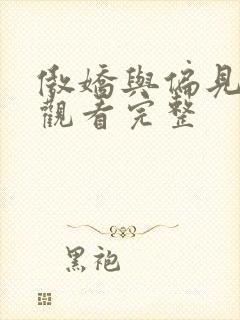 傲嬌與偏見
觀看完整
黑袍